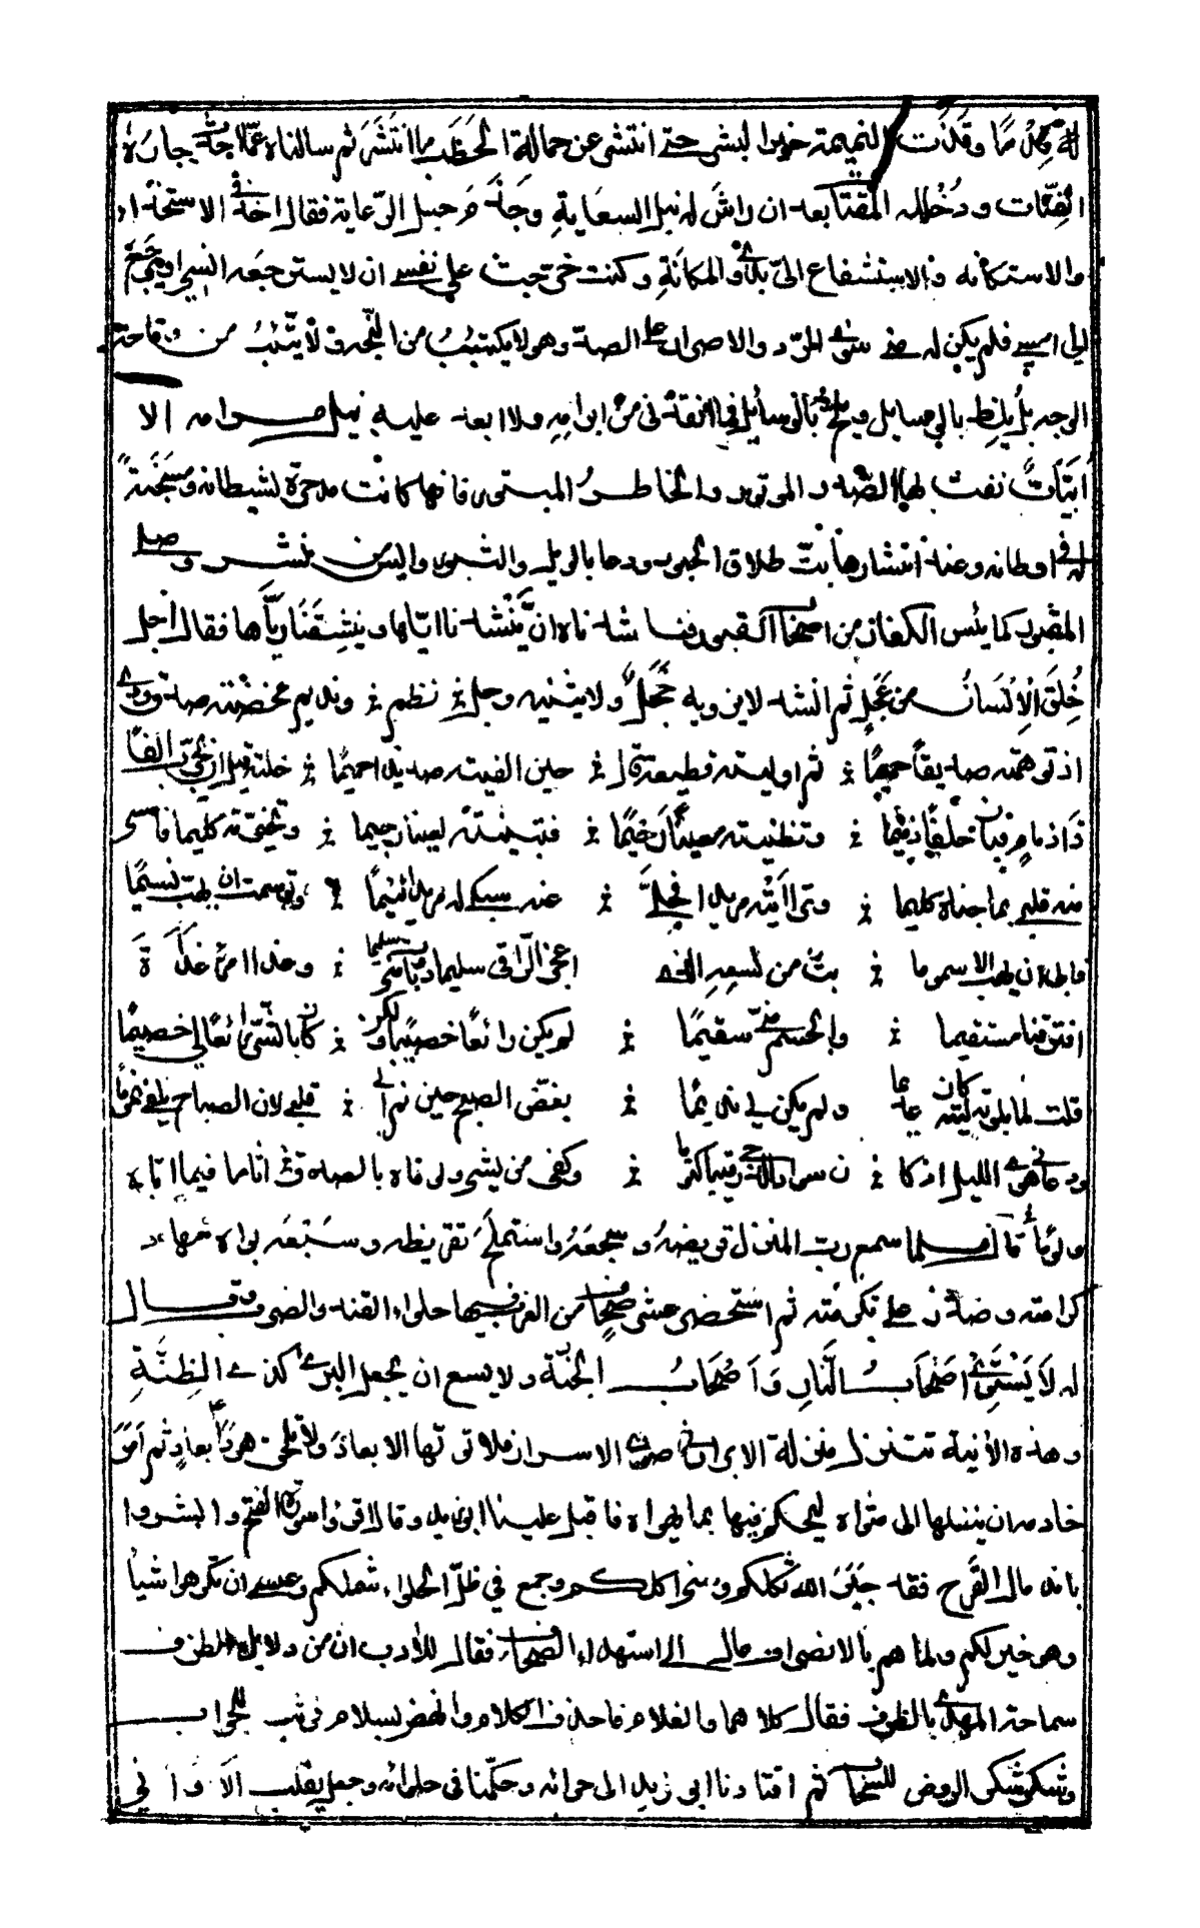 له قلدُ ما وقذت النميمة خوبرا لبشر حتى انتشى عن حمالة الحطب ما انتشر ثم سالناه عما احدث جاره
القتات ودخلله المفتات بعد ان راش له نبل السعاية وجذم حبل الرعاية فقال اخذ في الاستخذاء
والاستكانه والاستشفاع الىّ بذوي المكانة وكنت حرجت على نفسي ان لا يسترجعه انسي او يرجع
الي امسي فلم يكن له مني سوى الرّد والاصرار على الصد وهو لا يكتئب من النجه ولا يتئب من وقاحة
الوجه بل يلط بالوسايل ويلح بالوسائل فما انقذني من ابرامه ولا ابعد عليه نيل مرامه الا
ابيات نفث بها الصدر الموتور والخاطر المبتور فانها كانت مدحرة لشيطانه ومسجنة
له في اوطانه وعند انتشارها بت طلاق الحبور ودعا بالويل والثبور واليس من نشر وصلي
المقبور كما يئس الكفار من اصحاب القبور فناشدناه ان ينشدنا ايّاها وينشقنا ريّاها فقال اجل
خُلِقَ الإنسان من عجل ثم انشد لا يزويه خجل ولا يثنيه وجل نظم ونديم محضته صدق ودي
اذ توهمته صديقاً حميما ثم اوليته قطيعة قال حين الفيته صديدا حميمًا خلته قبل ان يجرب الفًا
ذا ذمام فبان جلفًا ذميما وتظنيته معينًا رخيمًا فتبينته لعينا رجيما وتخيرته كليما فامسى
منه قلبي بما جناه كليما وترااتيته مريدا فجلّى عنه سبكي له مريدا لئيمًا وتوسمت ان يهب نسيمًا
فابى ان يهب الا سموما بتّ من لسعه الذي اعجز الرّاقي سليما وبات مني سليما وغدا امرنا غداة
افترقنا مستقيما والجسم منّي سقيمًا لم يكن رائعًا خصيبًا ولكن كان بالشرّ رائعًا لي خصيمًا
قلت لما بلوته ليته كان عديما ولم يكن لي نديمًا بغّض الصبح حين نم الى قلبي لان الصباح يلفى نمومًا
ودعاني هوى الليل اذ كان سواد الدجى رقيبا كتوما وكفى من يشي ولو فاه بالصدق اثاما فيما اتاه
ولومًا قال فلما سمع رب المنزل قريضه وسجعه واستملح تقريظه وسبعه بواه مهاد
كرامته وصدّره على تكرمته ثم استحضر عشر صحاف من الغرب فيها حلواء القند والضرب وقال
له لا يستوي اصحاب النار واصحاب الجنّة ولا يسع ان يجعل البرئ كذي الظنّة
وهذه الانية تتنزل منزلة الابرار في صون الاسرار فلا تولها الابعاد ولا تلحق هودًا بعادٍ ثم امر
خادمه ان ينقلها الى مثواه ليحكم فيها بما يهواه فاقبل علينا ابو زيد وقال اقرؤا سورة الفتح وابشروا
باندمال القرح فقد جبر الله ثكلكم وسنى اكلكم وجمع في ظلّ الحلواء شملكم وعسى ان تكرهوا شيأ
وهو خير لكم ولما هم بالانصراف مال الى استهداء الصحاف فقال للادب ان من دلايل الظرف
سماحة المهدى بالظرف فقال كلاهما والغلام فاحذف الكلام وانهض بسلام فوثب للجواب
وشكر شكر الروض للسحاب ثم اقتادنا ابو زيد الى حوائه وحكّمنا في حلوائه وجعل يقلب الاواني